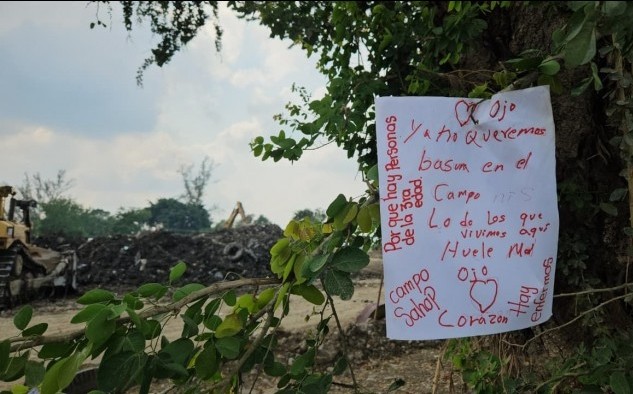 Ojo
Ya no queremos
basura en el
Campo
Lo do los que
vivimos aquí
Huele Mal
Ojo
Corazon
Porque hay Personas
de la 3ra
edad
campo
Hay
enfermos